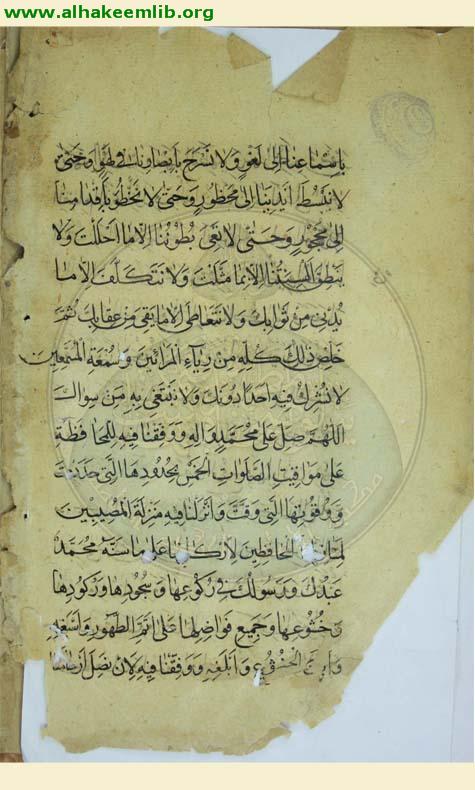 www.alhakeemlib.org
باسماعنا الى لغو ولا نسرح بابصارنا في لهو وحتى
لا نبسط ايدينا الى محظور وحتى لا نخطو باقدامنا
الى محجور وحتى لا تعي بطوننا الا ما احللت ولا
ينطق السنتنا الا بما مثلت ولا نتكلف الا ما
يدني من ثوابك ولا نتعاطى الا ما يقي من عقابك ثم
خلص ذلك كله من رياء المرائين وسمعة المسمعين
لا نشرك فيه احدا دونك ولا نبتغي به من سواك
اللهم صل على محمد واله ووفقنا فيه للمحافظة
على مواقيت الصلوات الخمس بحدودها التي حددت
ووقوتها التي وقت وانزلنا فيه منزلة المصيبين
الحافظين لاركانها على ما سنه محمد
عبدك ورسولك في ركوعها وسجودها وركودها
وخشوعها وجميع فواضلها على اتم الطهور واسبغه
الخشوع وابلغه ووفقنا فيه لان نصل ارحامنا